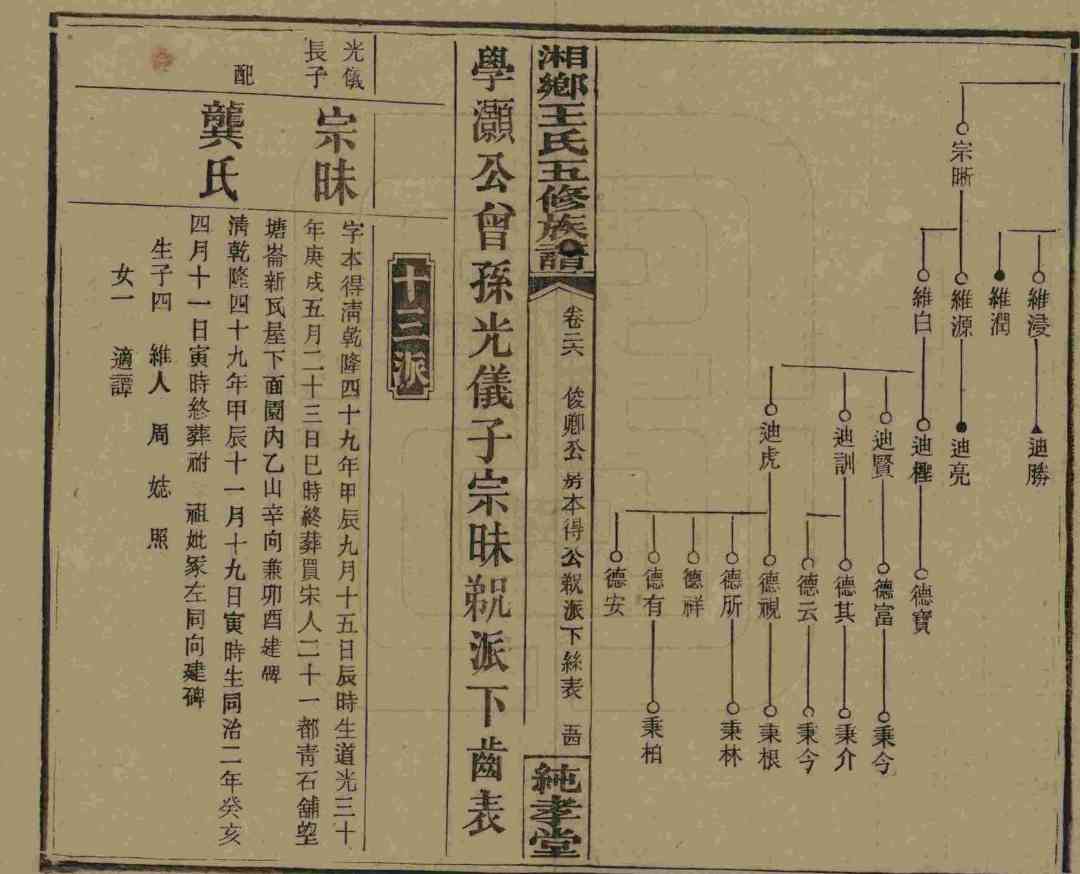 宗晰
維浸
維潤
維源
維白
迪勝
迪亮
迪檉
迪賢
迪訓
迪虎
德寶
德富
德其
德云
德視
德所
德祥
德有
德安
秉今
秉介
秉今
秉根
秉林
秉柏
湘鄉王氏五修族譜
卷三六 俊卿公房本得公派下絲表
純孝堂
學灝公曾孫光儀子宗昧派下齒表
十三派
光儀長子
宗昧
字本得清乾隆四十九年甲辰九月十五日辰時生道光三十
年庚戌五月二十三日巳時終葬買宋人二十一都靑石舖
塘崙新瓦屋下面園內乙山辛向兼卯酉建碑
配
龔氏
清乾隆四十九年甲辰十一月十九日寅時生同治二年癸亥
四月十一日寅時終葬祔 祖妣冢左同向建碑
生子四 維人 周 照
女一 適譚